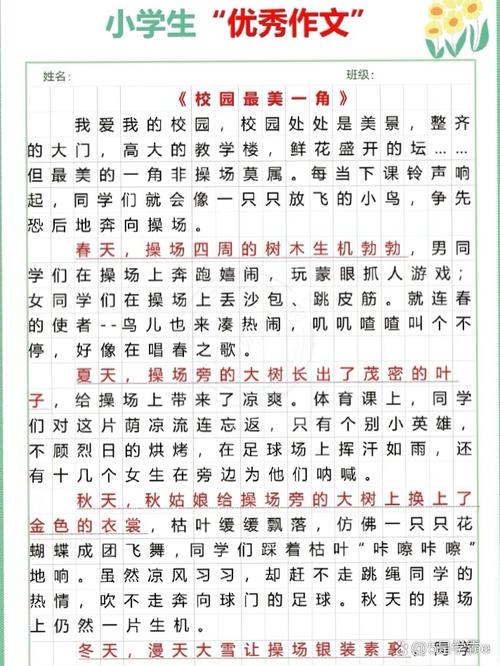 小学生“优秀作文”
姓名： 班级：
《校园最美一角》
我爱我的校园，校园处处是美景，整齐
的大门，高大的教学楼，鲜花盛开的坛……
但最美的一角非操场莫属。每当下课铃声响
起，同学们就会像一只只放飞的小鸟，争先
恐后地奔向操场。
春天，操场四周的树木生机勃勃，男同
学们在操场上奔跑嬉闹，玩蒙眼抓人游戏；
女同学们在操场上丢沙包、跳皮筋。就连春
的使者--鸟儿也来凑热闹，叽叽喳喳叫个不
停，好像在唱春之歌。
夏天，操场旁的大树长出了茂密的叶
子，给操场上带来了凉爽。体育课上，同学
们对这片荫凉流连忘返，只有个别小英雄，
不顾烈日的烘烤，在足球场上挥汗如雨，还
有十几个女生在旁边为他们呐喊。
秋天，秋姑娘给操场旁的大树上换上了
金色的衣裳，枯叶缓缓飘落，仿佛一只只花
蝴蝶成团飞舞，同学们踩着枯叶“咔嚓咔嚓”
地响。虽然凉风习习，却赶不走跳绳同学的
热情，吹不走奔向球门的足球。秋天的操场
上仍然一片生机。
冬天，漫天大雪让操场银装素裹，同学